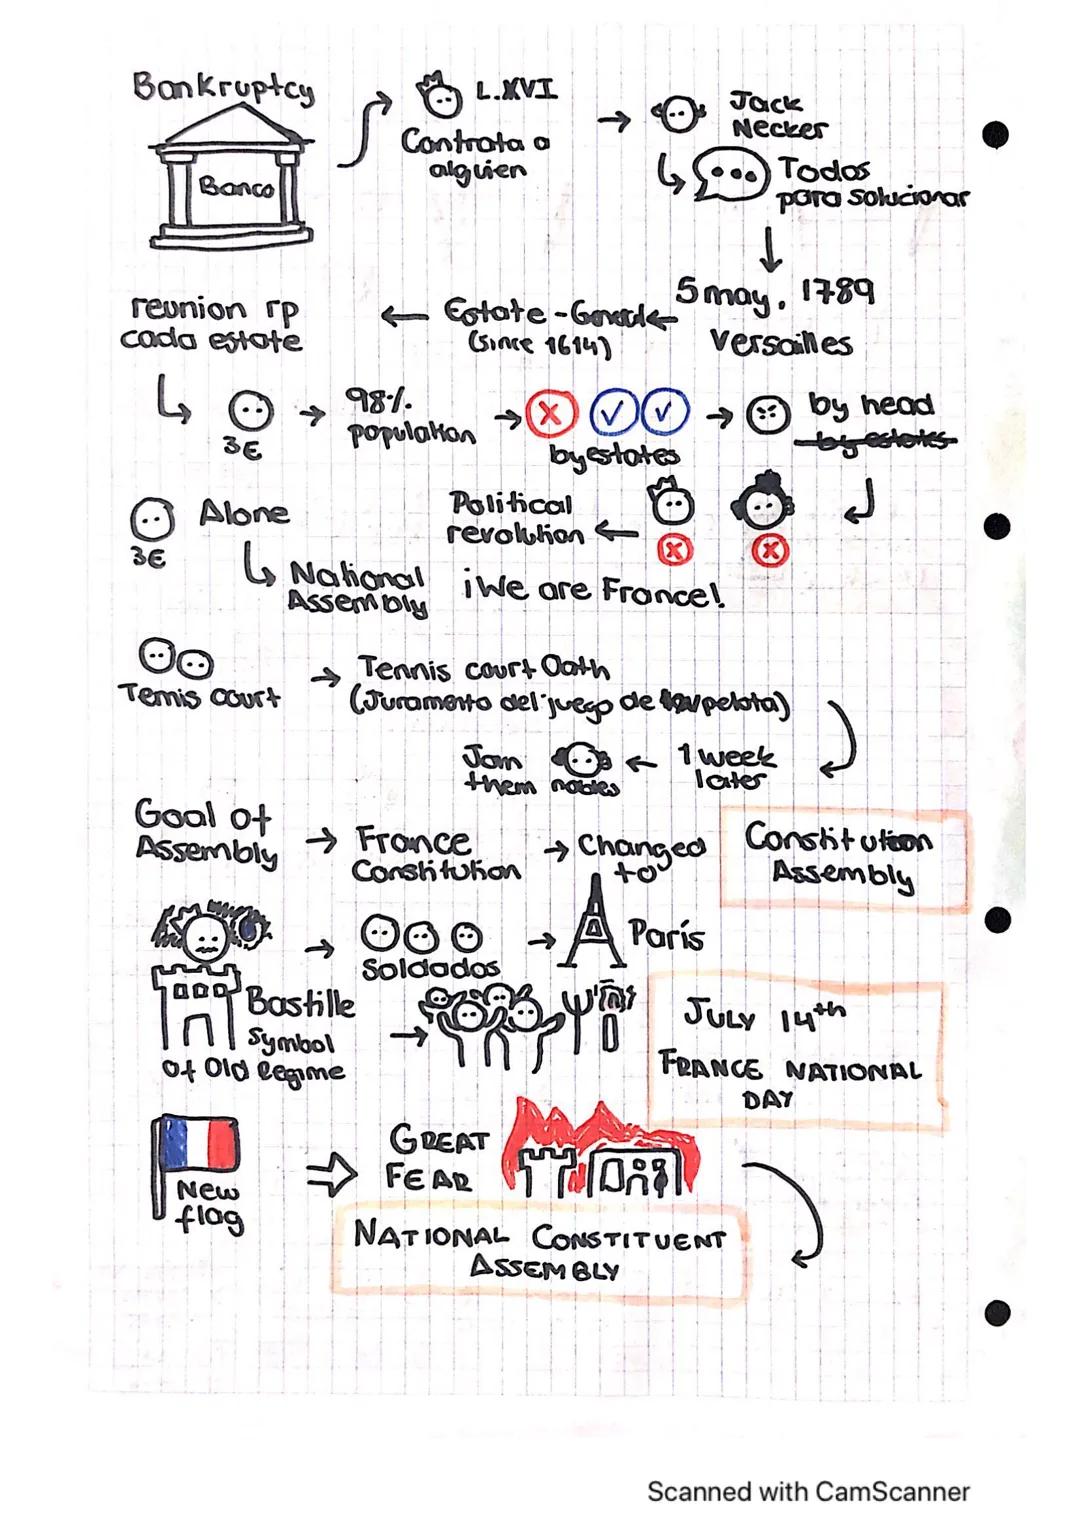 Bankruptcy
Banco
L.XVI
Contrata a
alguien
Jack
Necker
Todos
para solucionar
5 may, 1789
Versailles
Estate - General
(since 1614)
reunion rp
cada estate
3E
98%
population
by estates
by head
by estates
Political
revolution
3E
Alone
National
Assembly
¡We are France!
Tennis court
Tennis court Oath
(Juramento del juego de pelota)
1 week
later
Join
them nobles
Goal of
Assembly
France
Constitution
Changed
to
Constitution
Assembly
Soldados
París
Bastille
Symbol
of Old Regime
JULY 14th
FRANCE NATIONAL
DAY
New
flag
GREAT
FEAR
NATIONAL CONSTITUENT
ASSEMBLY
Scanned with CamScanner